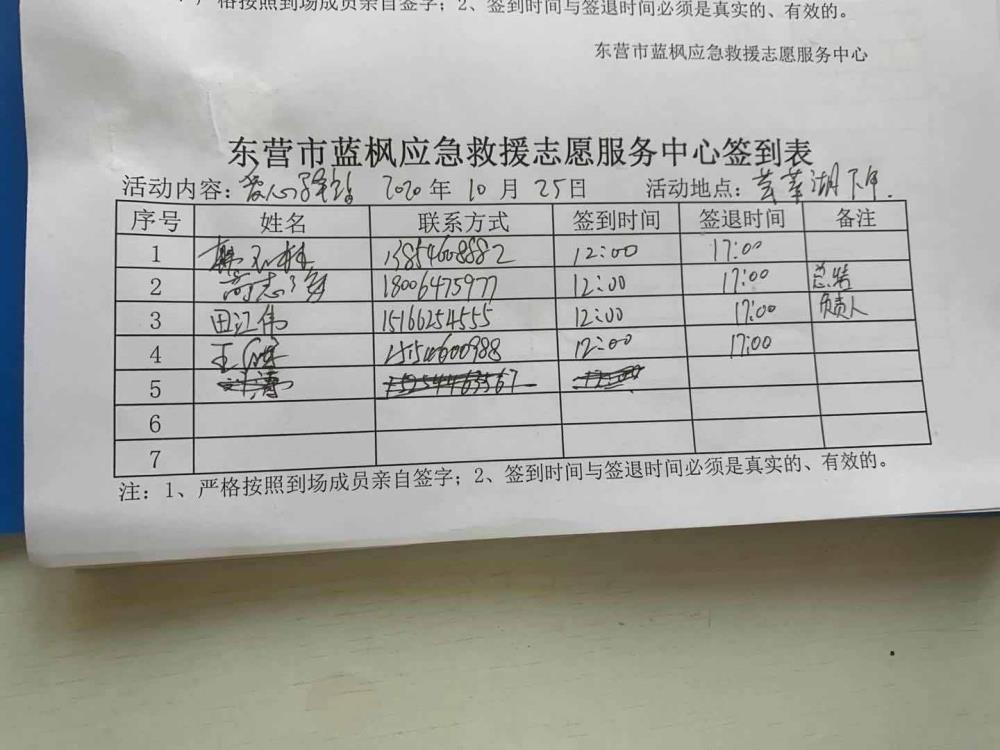 严格按照到场成员亲自签字；2、签到时间与签退时间必须是真实的、有效的。
东营市蓝枫应急救援志愿服务中心
东营市蓝枫应急救援志愿服务中心签到表
活动内容：爱心驿站 2020年10月25日 活动地点：湖
序号 姓名 联系方式 签到时间 签退时间 备注
1 13854608882 12:00 17:00
2 高志 18006475977 12:00 17:00
3 田江伟 15166254555 12:00 17:00 负责人
4 王 12:00 17:00
5
6
7
注：1、严格按照到场成员亲自签字；2、签到时间与签退时间必须是真实的、有效的。